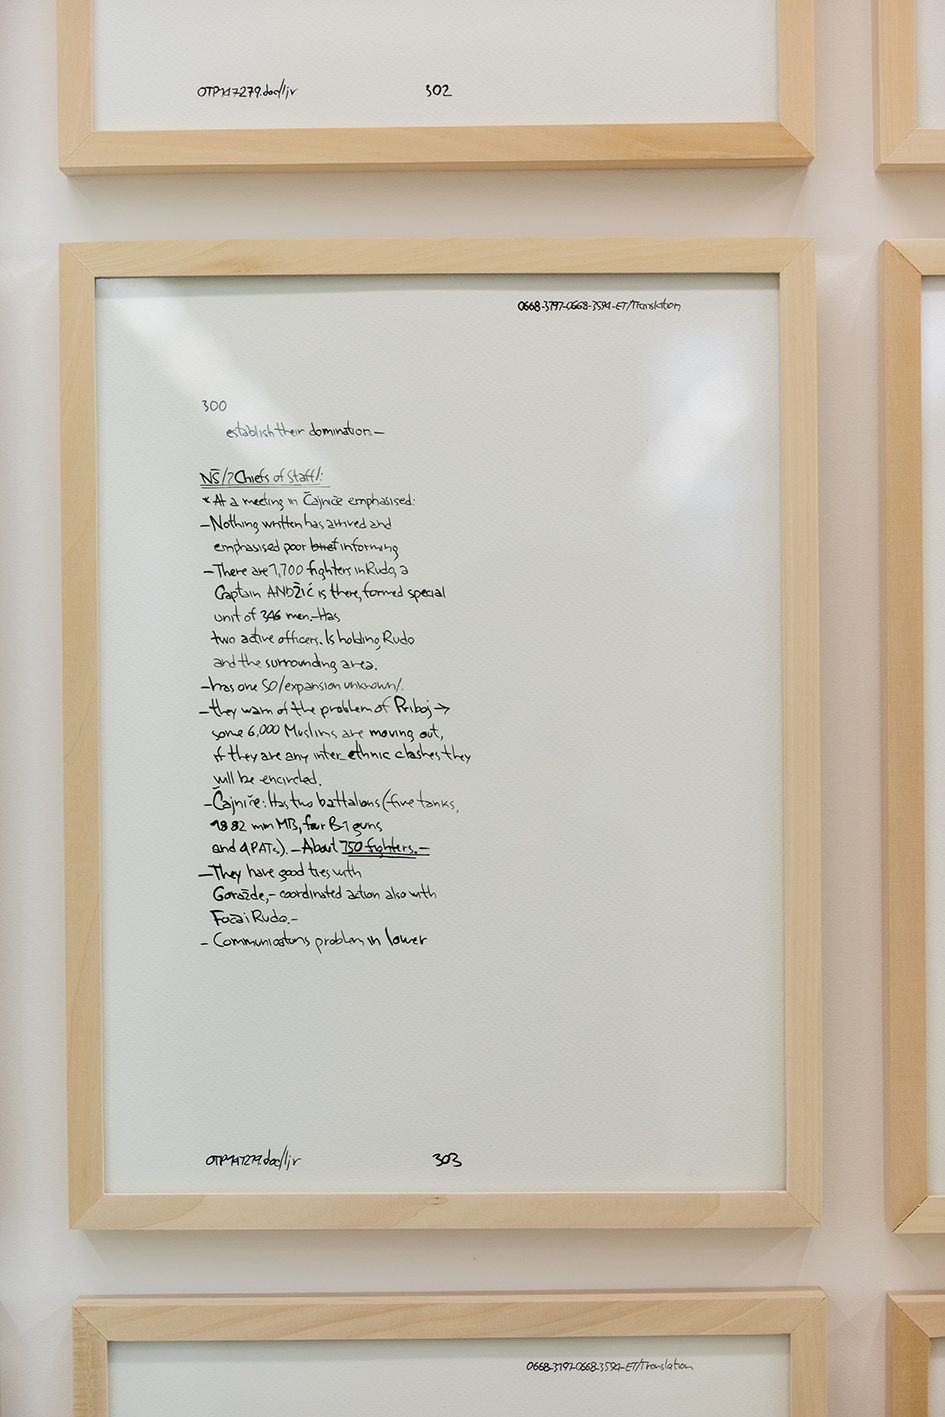 OTP147279.doc/ljr 302
0668-3797-0668-3594-ET/Translation
300
establish their domination.—
NŠ/?Chiefs of Staff/:
* At a meeting in Čajniče emphasised:
– Nothing written has arrived and
emphasised poor brief informing
– There are 1,700 fighters in Rudo, a
Captain ANDŽIĆ is there, formed special
unit of 346 men.– Has
two active officers. Is holding Rudo
and the surrounding area.
– has one SO/expansion unknown/.
– they warn of the problem of Priboj →
some 6,000 Muslims are moving out,
if they are any inter-ethnic clashes they
will be encircled.
– Čajniče: Has two battalions (five tanks,
82 mm MB, four B-1 guns
and 4 PATs). – About 750 fighters.–
– They have good ties with
Goražde,– coordinated action also with
Foča i Rudo.–
– Communications problem in lower
OTP147279.doc/ljr 303
0668-3797-0668-3594-ET/Translation